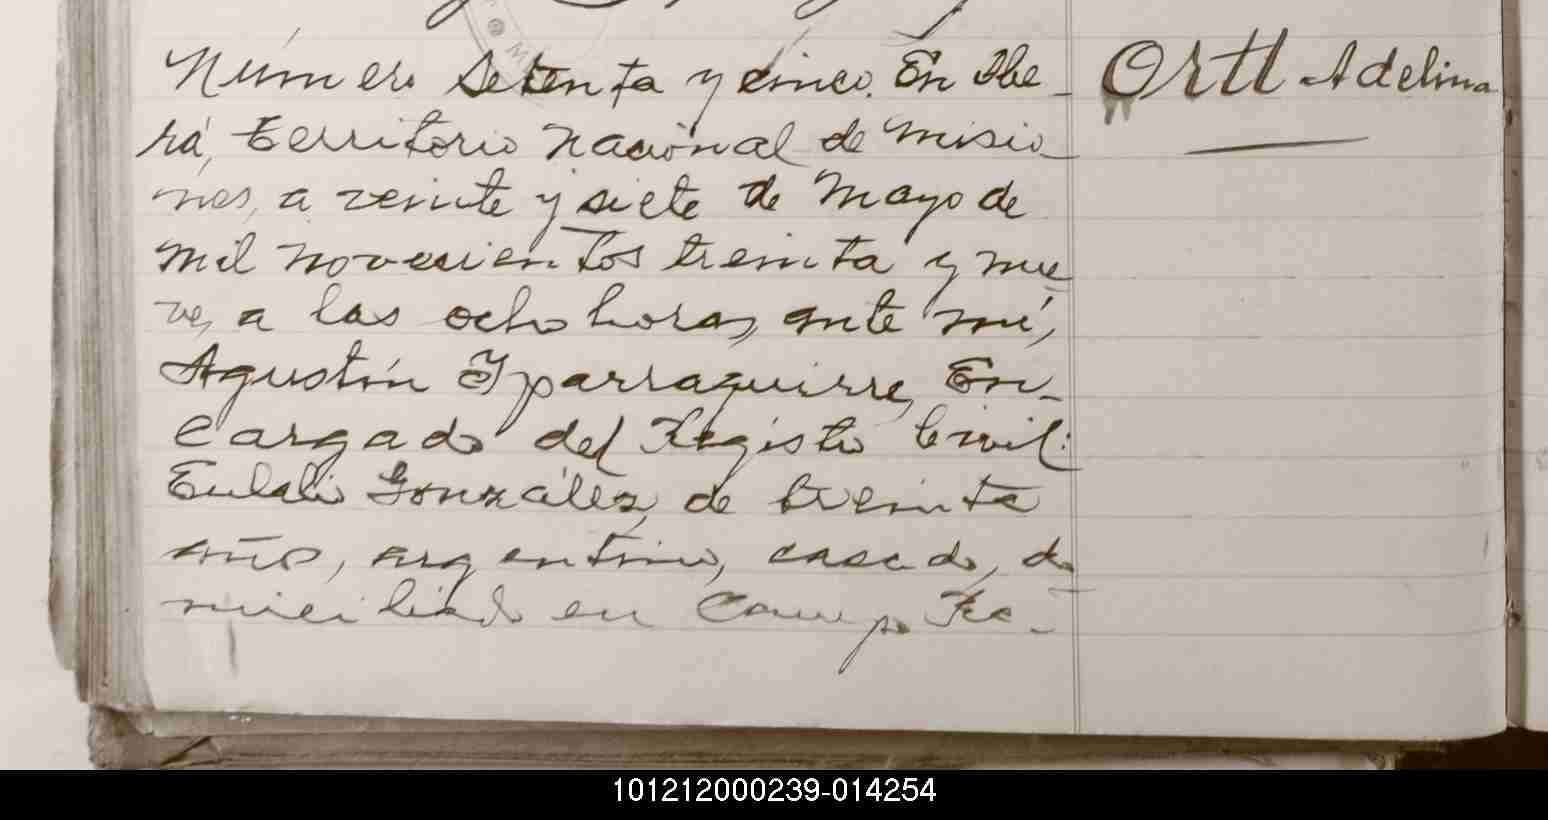 Número setenta y cinco. En Ibe-
rá, territorio nacional de Misio-
nes, a veinte y siete de Mayo de
mil novecientos treinta y nue
ve, a las ocho horas, ante mí,
Agustín Yparraguirre, En-
cargado del Registro Civil:
Eulalio Gonzáles, de treinta
años, argentino, casado, do
miciliado en Campo
Ortl Adelina
101212000239-014254